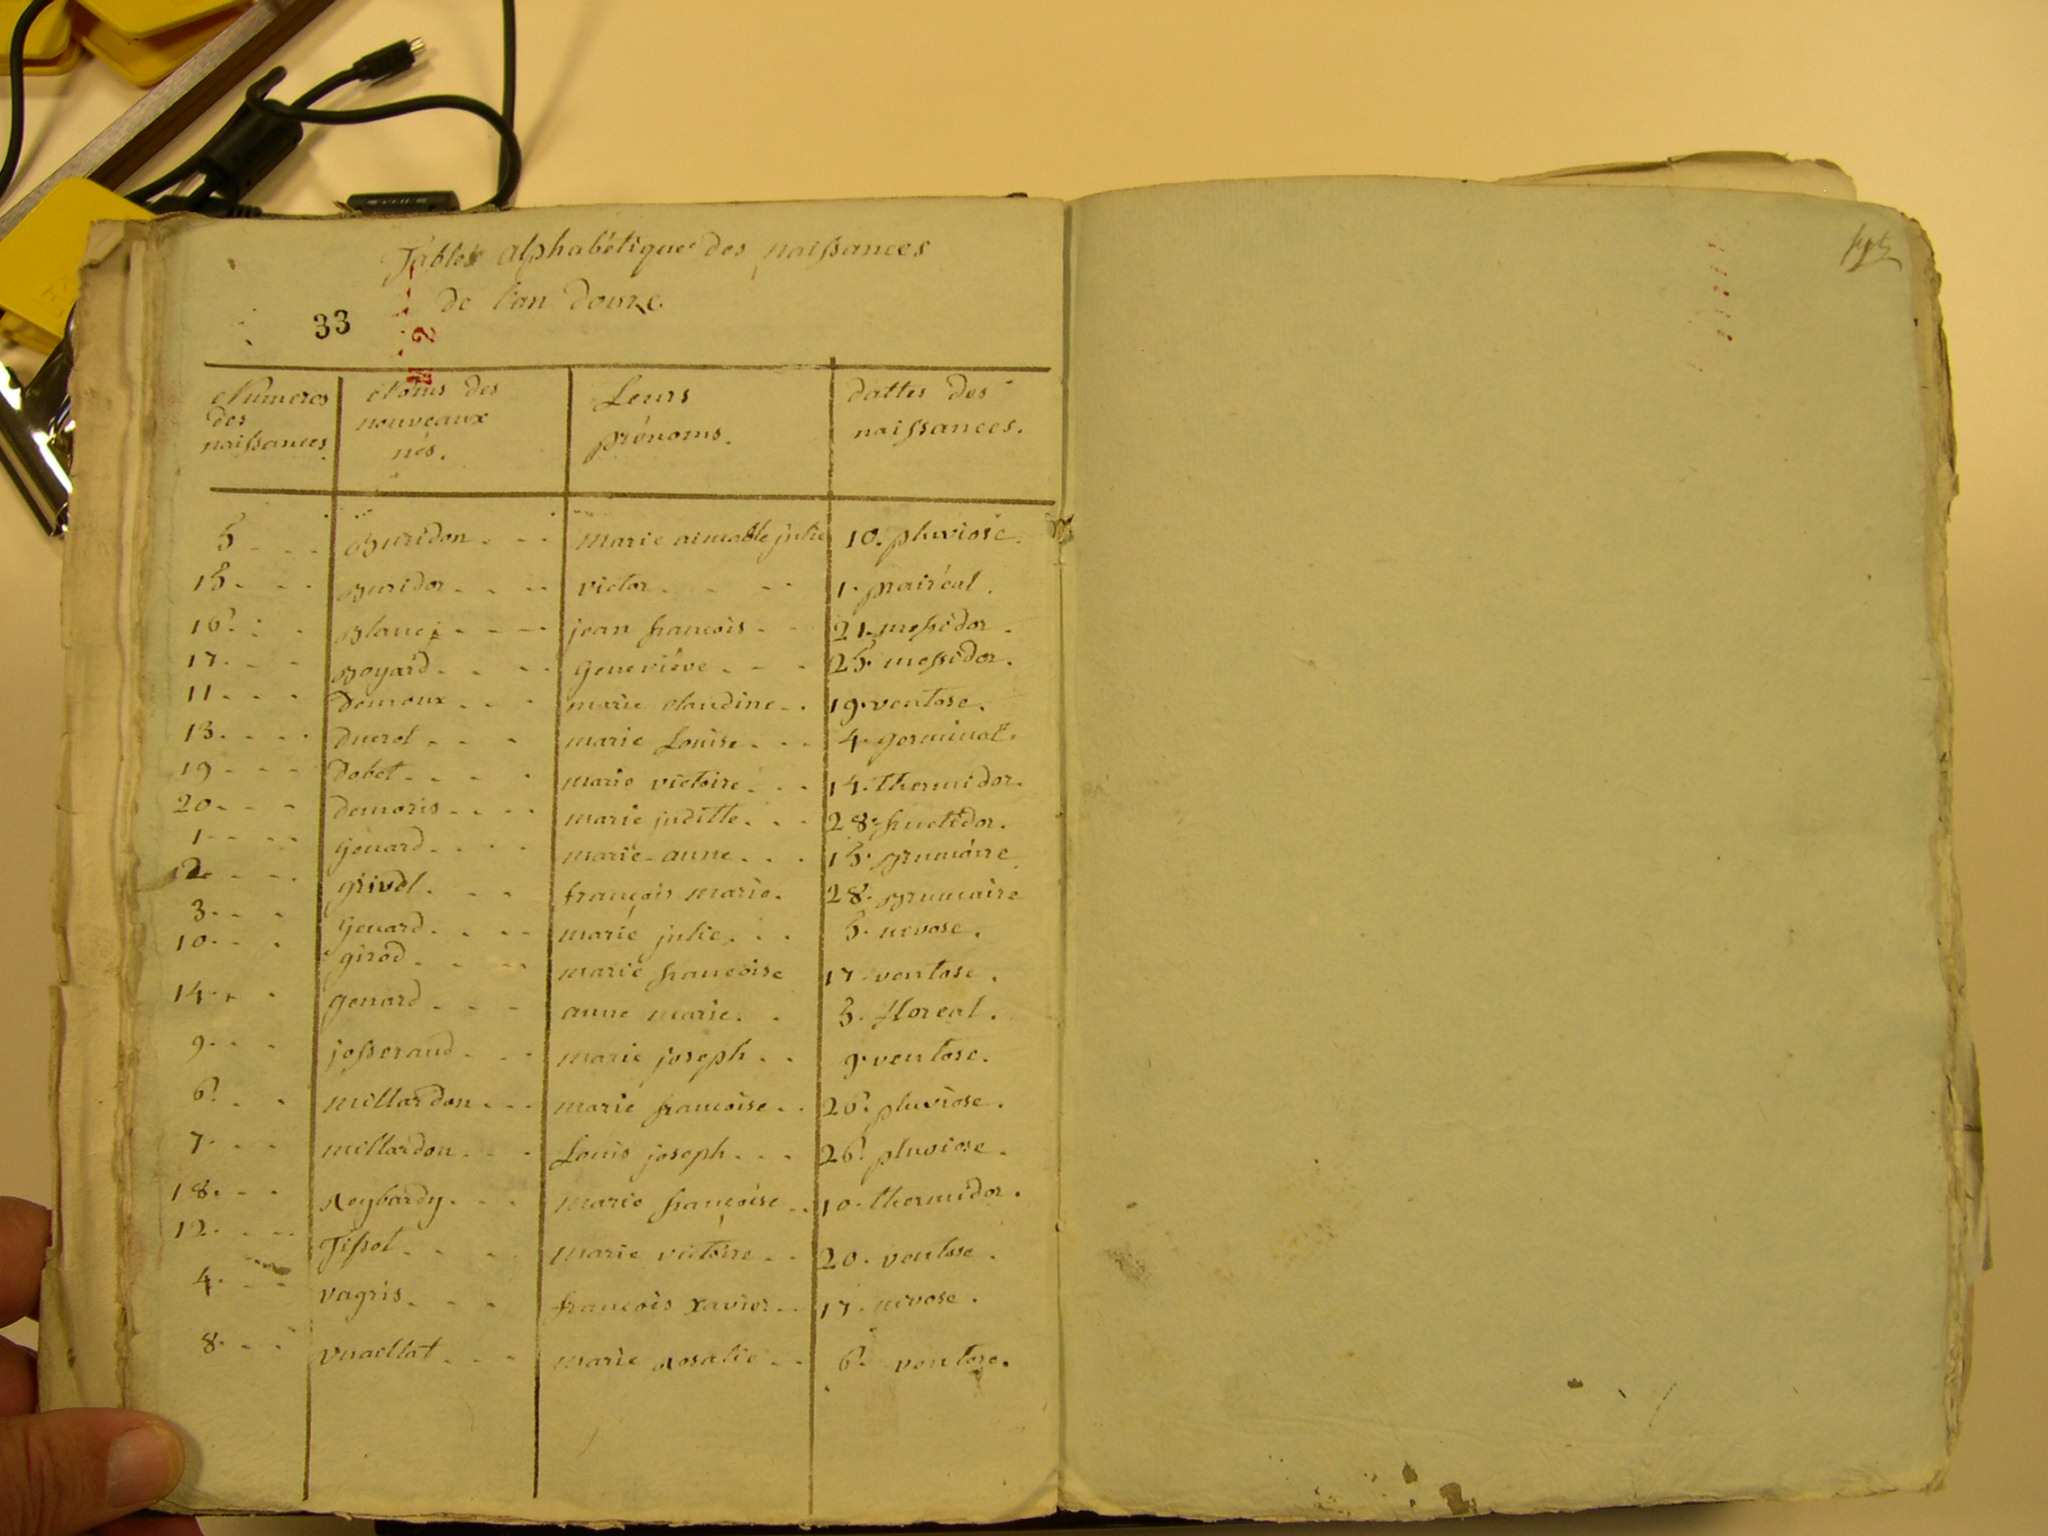 Tables alphabétique des naissances
de l'an douze.
33
2
Numeros des naissances. Noms des nouveaux nés. Leurs prénoms. dattes des naissances.
5 Buridon marie aimable julie 10. pluviose.
15 Buridon victor 1. prairéal.
16 Blanc jean francois 21. messidor.
17 Boyard geneviéve 25. messidor.
11 Demoux marie claudine 19. ventose.
13 ducrot marie Louise 4. germinal.
19 dobet marie victoire 14. thermidor.
20 demoris marie juditte 28. fructidor.
1 genard marie-anne 15. brumaire
2 grivel françois marie. 28. brumaire
3 genard marie julie. 5. nivose.
10 girod marie francoise 17. ventose.
14 genard anne marie. 5. floreal.
9 josserand marie joseph 9. ventose.
6 millardon marie francoise 26. pluviose.
7 millardon Louis joseph 26. pluviose.
18 Reybardy marie françoise 10. thermidor.
12 Tissot marie victoire 20. ventose.
4 vagris francois xavier 17. nivose.
8 vuaillat marie rosalie 6. ventose.